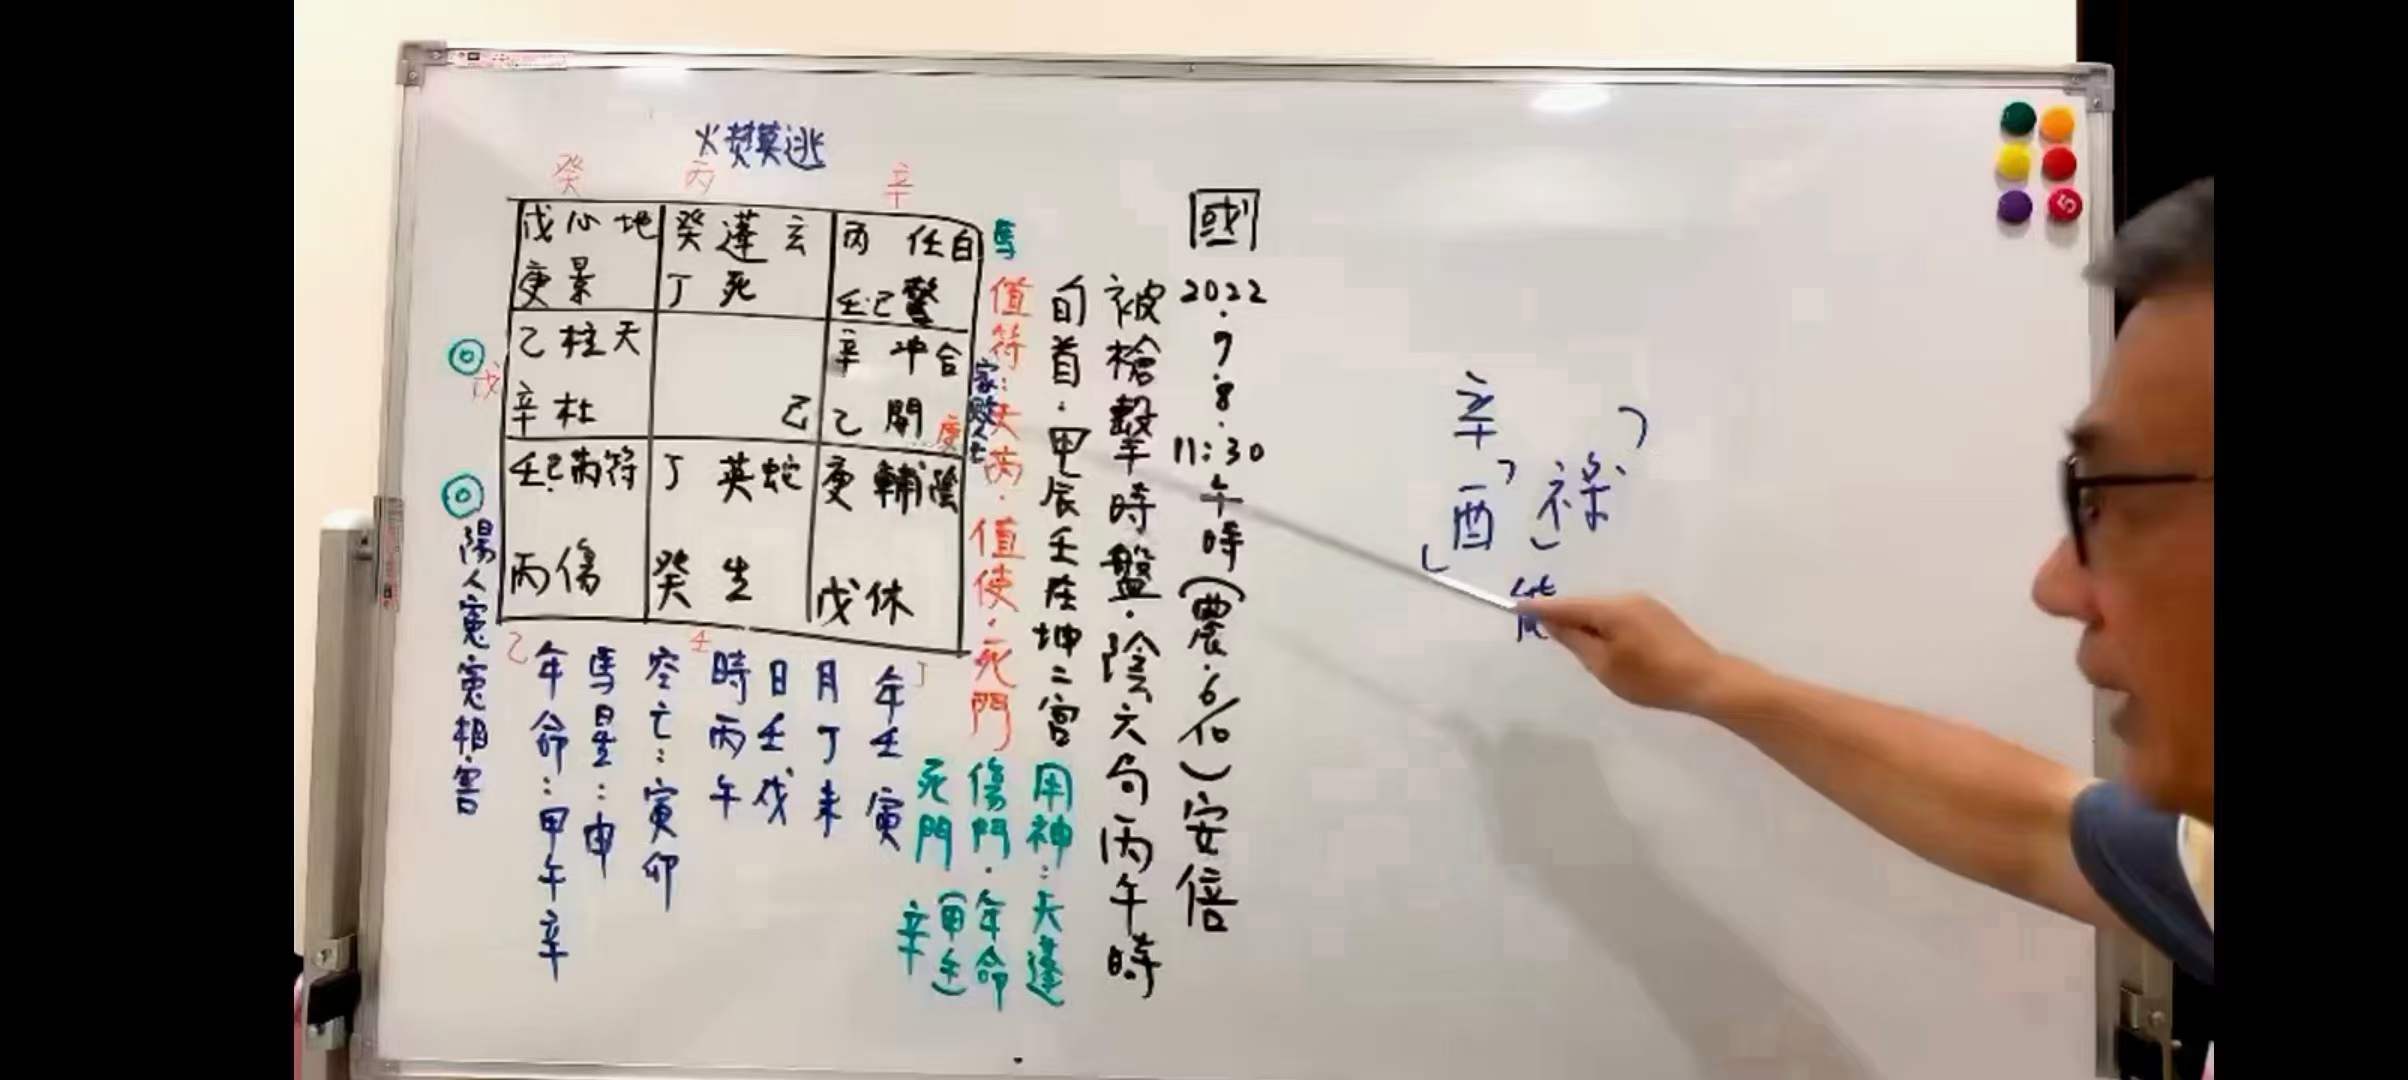 國
2022.7.8.11:30午時(農.6/10)安倍
被槍擊時盤.陰六句丙午時
旬首.甲辰壬在坤二宮
馬
值符:天芮.值使.死門
用神:天蓬
傷門.年命
死門(甲午
辛
癸 丙 辛
戊心地 癸蓬玄 丙任白
庚景 丁死 壬己驚
乙柱天 辛冲合
辛杜 己 乙開
壬己芮符 丁英蛇 庚輔陰
丙傷 癸生 戊休
戊
庚
乙 壬 丁
年壬寅
月丁未
日壬戌
時丙午
空亡:寅卯
馬星:申
年命:甲午辛
陽人冤冤相害
辛
酉 祿